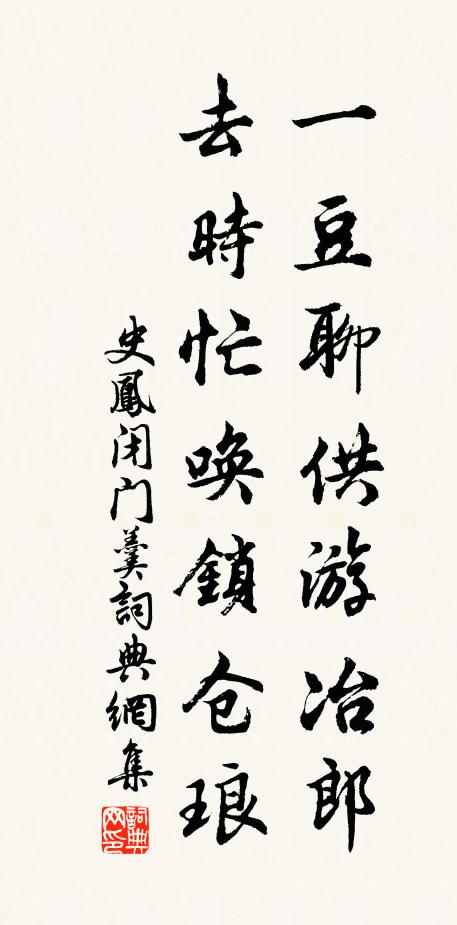 一豆聊供游冶郎
去時忙唤鎖仓琅
史鳳闭门羹詞典網集
詞典网印